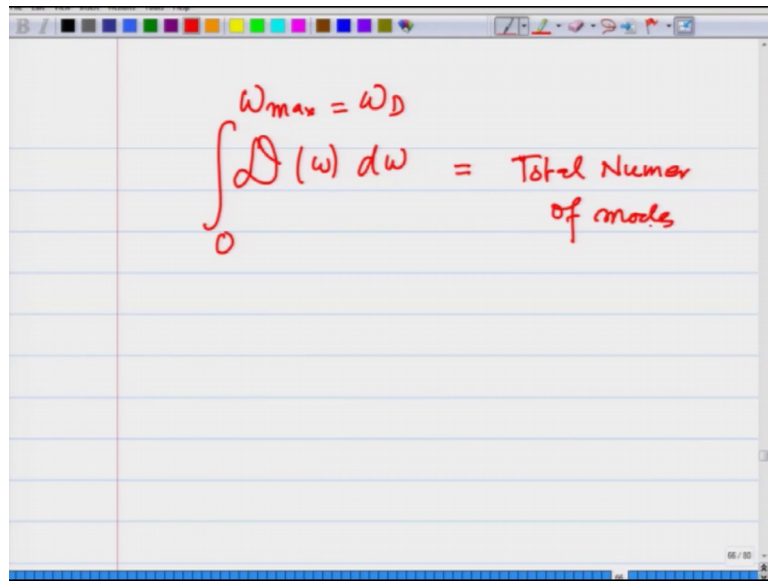 B I
ω_max = ω_D
∫ D(ω) dω = Total Numer
of modes
0
66 / 80
66